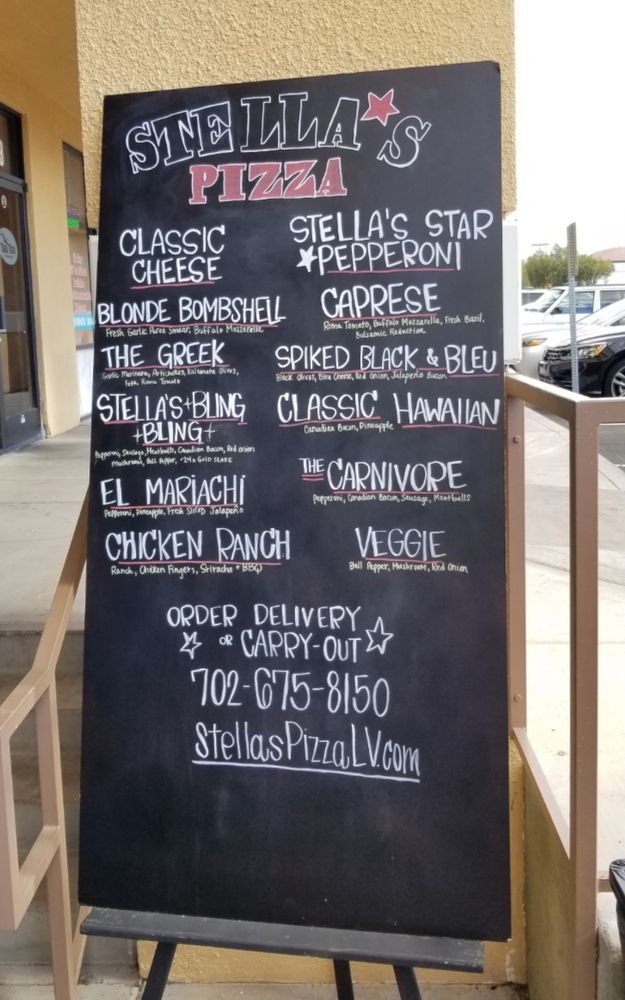 STELLA'S
PIZZA
CLASSIC
CHEESE
STELLA'S STAR
PEPPERONI
BLONDE BOMBSHELL
Fresh Garlic Puree Smear, Buffalo Mozzarella
CAPRESE
Roma Tomato, Buffalo Mozzarella, Fresh Basil,
Balsamic Reduction
THE GREEK
Garlic Marinara, Artichokes, Kalamata Olives,
Feta, Roma Tomato
SPIKED BLACK & BLEU
Black Olives, Bleu Cheese, Red Onion, Jalapeño Bacon
STELLA'S+BLING
+BLING+
Pepperoni, Sausage, Meatballs, Canadian Bacon, Red onion
Mushroom, Bell Pepper, +24K GOLD FLAKE
CLASSIC HAWAIIAN
Canadian Bacon, Pineapple
EL MARIACHI
Pepperoni, Pineapple, Fresh Sliced Jalapeño
THE CARNIVORE
Pepperoni, Canadian Bacon, Sausage, Meatballs
CHICKEN RANCH
Ranch, Chicken Fingers, Sriracha + BBQ
VEGGIE
Bell Pepper, Mushroom, Red Onion
ORDER DELIVERY
OR CARRY-OUT
702-675-8150
StellasPizzaLV.com